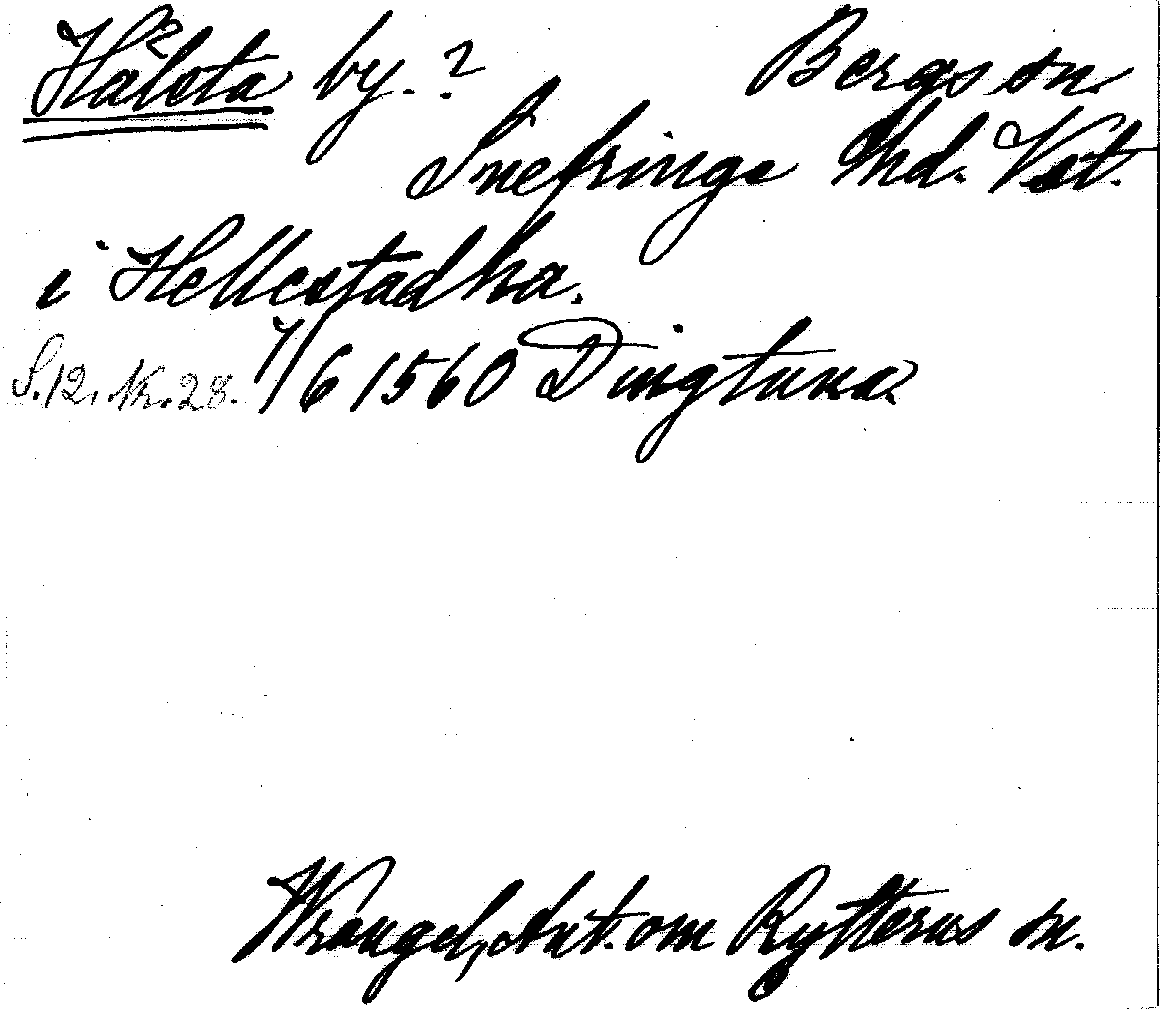 Hålsta by. ? Bergs sn.
Snefringe hd. Vst.
i Hellestadha.
S.12. Nr. 28. 1/6 1560 Dingtuna
Wrangel, Ant. om Rytterns sn.